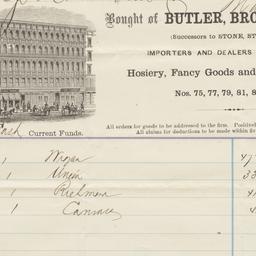 Bought of BUTLER, BRO
(Successors to STONE, ST
IMPORTERS AND DEALERS
Hosiery, Fancy Goods and
Nos. 75, 77, 79, 81, 8
Cash Current Funds.
All orders for goods to be addressed to the firm. Positivel
All claims for deductions to be made within fiv
1 47
1 Union 33
1 Richmond 4
1 Canvas